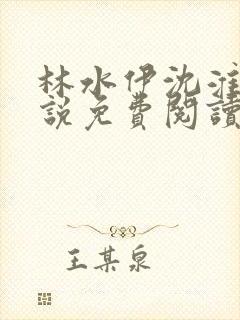 林水伊沈淮
說免費閱讀
王某泉